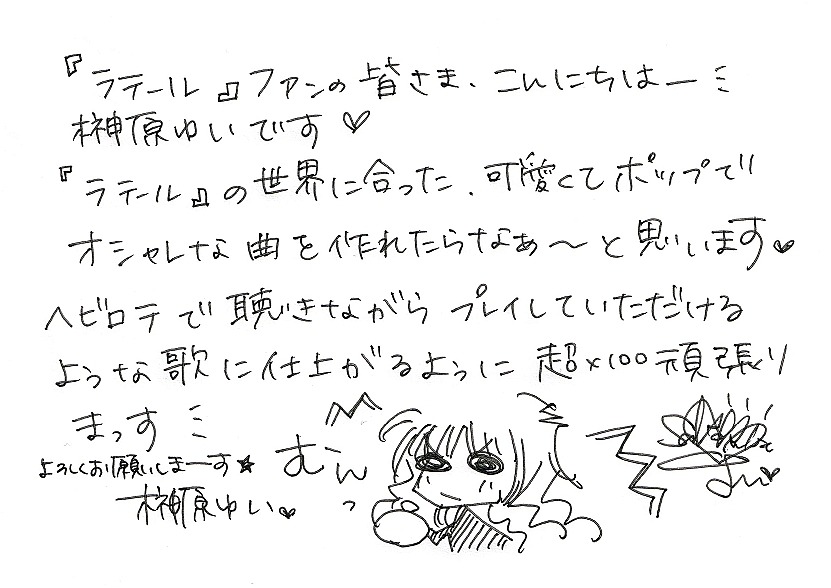 『ラテール』ファンの皆さま、こんにちはーミ
榊原ゆいです♡
『ラテール』の世界に合った、可愛くてポップで
オシャレな曲を作れたらなぁ〜と思います♥
ヘビロテで聴きながらプレイしていただける
ような歌に仕上がるように超×100頑張り
まっすミ
よろしくお願いしまーす★
榊原ゆい♥
むんっ